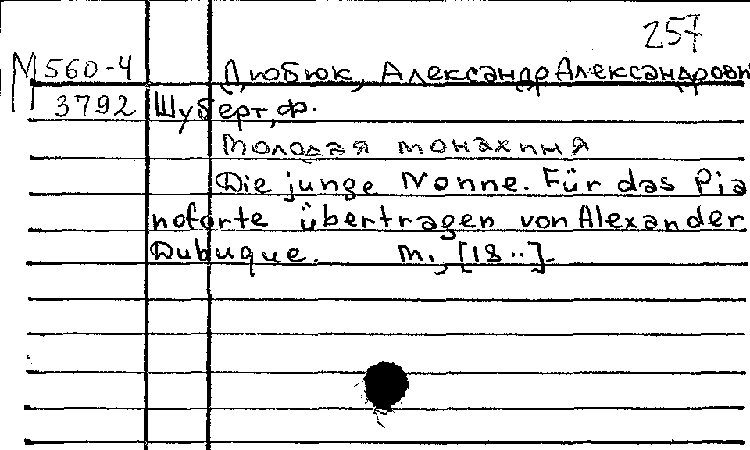 257
М 560-4 Дюбюк, Александр Александрович
3792 Шуберт, Ф.
Молодая монахиня
Die junge Nonne. Für das Pia
noforte übertragen von Alexander
Dubuque. М., [18..].